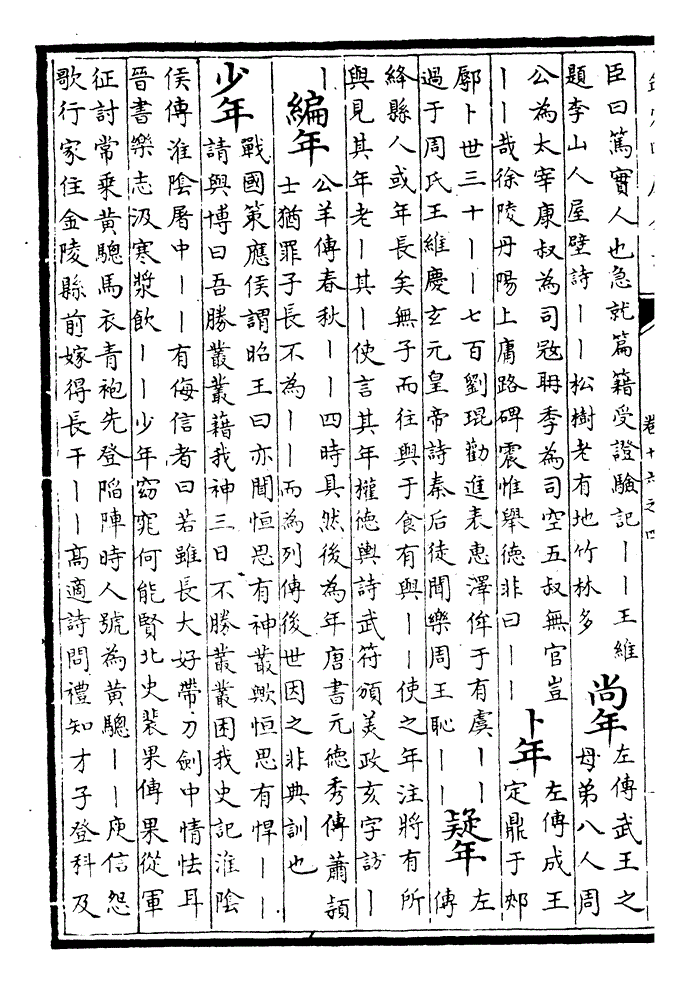 卷十六之四
臣曰篤實人也急就篇籍受證驗記丨丨王維
題李山人屋壁詩丨丨松樹老有地竹林多
尚年
左傳武王之
母弟八人周
公為太宰康叔為司寇聃季為司空五叔無官豈
丨丨哉徐陵丹陽上庸路碑震惟舉德非曰丨丨
卜年
左傳成王
定鼎于郟
鄏卜世三十丨丨七百劉琨勸進表惠澤侔于有虞丨丨
過于周氏王維慶玄元皇帝詩秦后徒聞樂周王恥丨丨
疑年
左
傳
絳縣人或年長矣無子而往與于食有與丨丨使之年注將有所
與見其年老丨其丨使言其年權德輿詩武符頒美政亥字訪丨
丨
編年
公羊傳春秋丨丨四時具然後為年唐書元德秀傳蕭頴
士猶罪子長不為丨丨而為列傳後世因之非典訓也
少年
戰國策應侯謂昭王曰亦聞恒思有神叢歟恒思有悍丨丨
請與博曰吾勝叢叢藉我神三日不勝叢叢困我史記淮陰
侯傳淮陰屠中丨丨有侮信者曰若雖長大好帶刀劍中情怯耳
晉書樂志汲寒漿飲丨丨少年窈窕何能賢北史裴果傳果從軍
征討常乘黄驄馬衣青袍先登陷陣時人號為黄驄丨丨庾信怨
歌行家住金陵縣前嫁得長干丨丨高適詩問禮知才子登科及